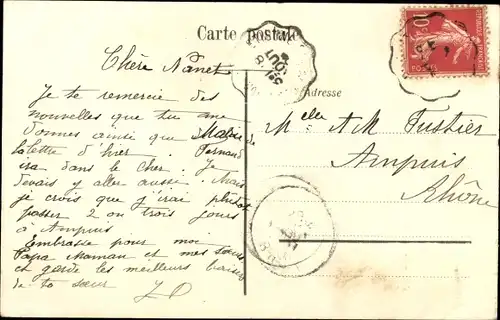 Carte postale
Adresse
Chère Nanet
Je te remercie des
nouvelles que tu me
donnes ainsi que
la lettre d'hier. Fernand
ira dans le Cher. Je
devais y aller aussi. Mais
je crois que j'irai plutôt
passer 2 ou trois jours
à Ampuis
Embrasse pour moi
Papa Maman et mes sœurs
et garde les meilleurs baisers
de ta sœur
Melle A M Fustier
Ampuis
Rhône
10